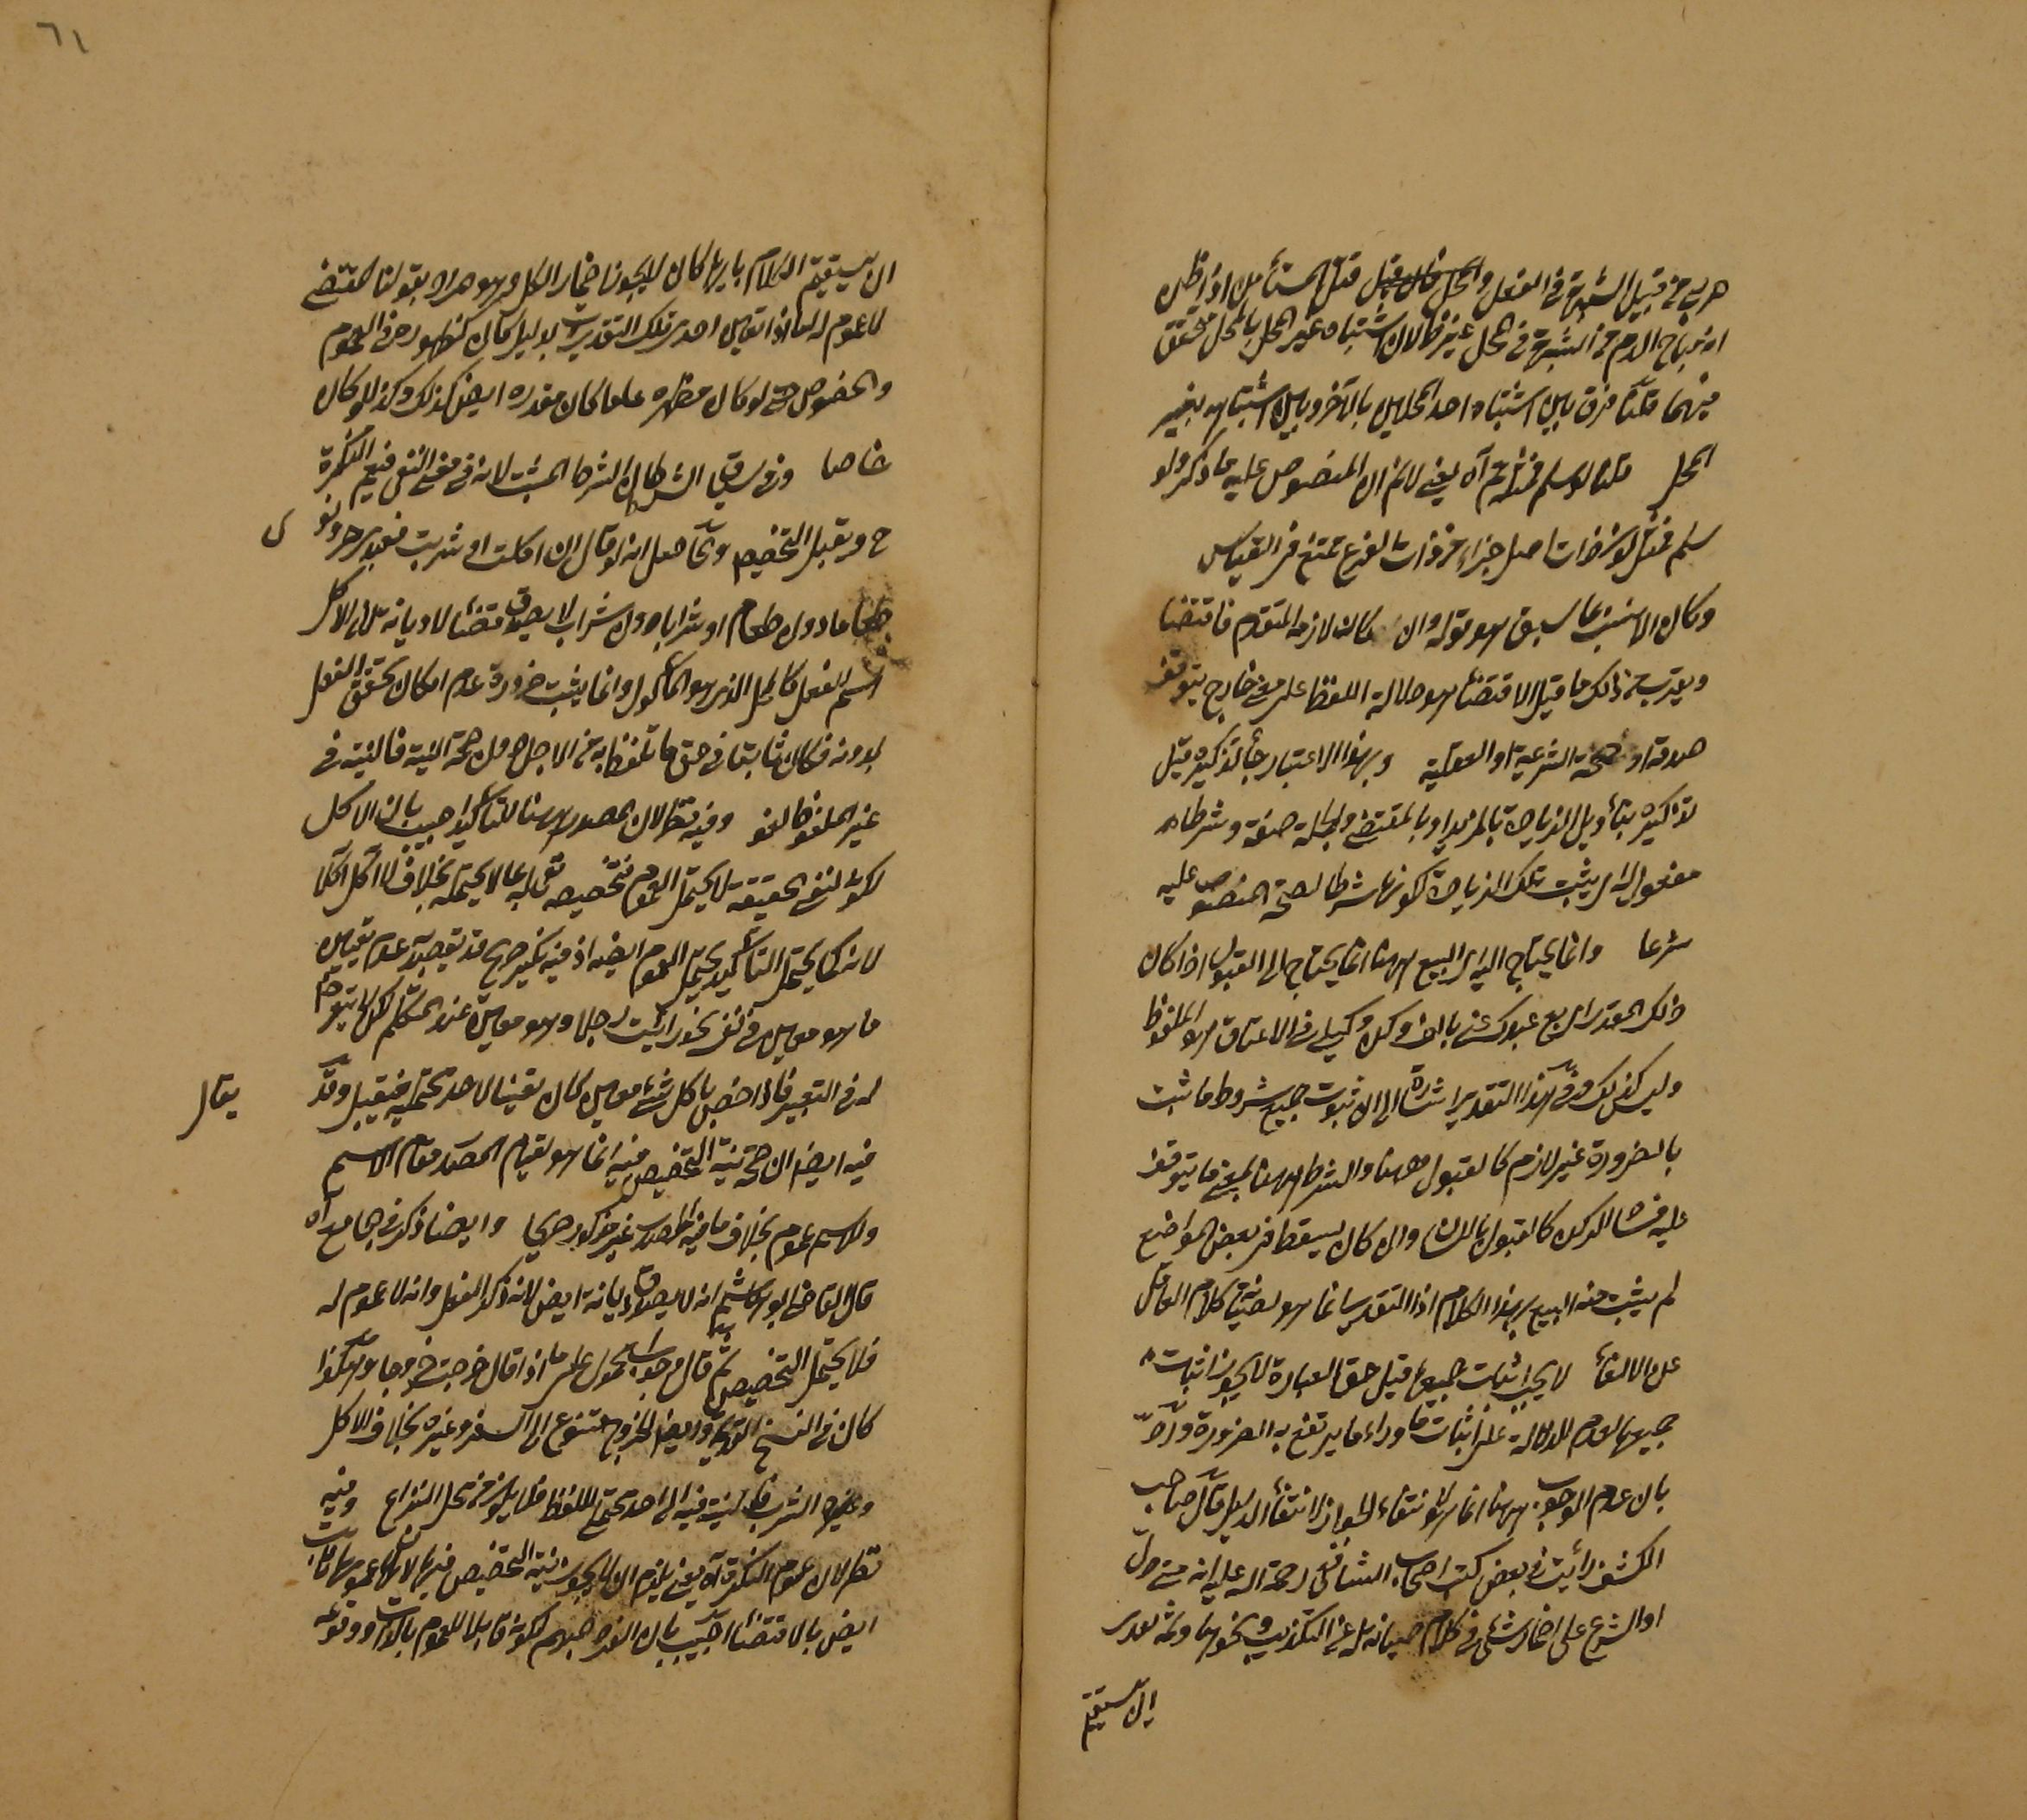 حربي من قبيل الشبهة في الفعل والمحل قال قيل قتل المستأمن اذا ظن
انه مباح الدم من الشبهة في المحل غير ظ لان اشتباه غير المحل بالمحل متحقق
فيهما قلنا فرق بين اشتباه احد المحلين بالآخر وبين اشتباهه بغير
المحل قلنا لو سلم فمثله ثم آه يعني لا نم ان المنصوص عليه ما ذكر ولو
سلم فمثل لو ذات اصل جزاء من ذات الفرع تمتنع فر القياس
وكان الانسب بما سبق هو قوله وان كان لازمه المتقدم فاقتضا
ويقرب من ذلك ما قيل الاقتضاء هو دلالة اللفظ على معنى خارج يتوقف
صدقه او صحته الشرعية او العقلية وبهذا الاعتبار جاء لتذكيره قيل
تذكيره بتأويل الزيادة بالمزيد او بالمقتضى والجملة صفة وشرطا
مفعول له اي يثبت تلك الزيادة لكونها شرطا لصحة المنصوص عليه
شرعا وانما يحتاج اليه اي البيع ههنا انما يحتاج الى القبول اذا كان
ذلك المقدر اي بع عبدك عني بالف وكن وكيلي في الاعتاق هو الملفوظ
وليس كذلك وفي هذا التقدير اشارة الى ان ثبوت جميع شروط ما ثبت
بالضرورة غير لازم كالقبول ههنا والشرط ههنا بمعنى ما يتوقف
عليه فيشمل الركن كالقبول باللسان وان كان يسقط في بعض المواضع
لم يثبت منه البيع بهذا الكلام اذ التقدير انما هو لصيانة كلام العاقل
عن الالغاء لا يجب اثبات جميعها قيل حق العبارة لا يجوز اثبات
جميعها لعدم الدلالة على اثبات ما وراء ما يرتفع به الضرورة ورد
بان عدم الوجوب ههنا انما هو لانتفاء الجواز لانتفاء الدليل قال صاحب
الكشف رأيت في بعض كتب اصحاب الشافعي رحمة الله عليه انه متى دل
او الشرع على اضمار شيء في كلام صيانة له عن التكذيب ونحوها وثمه تقدير
ان يستقيم
٦١
ان يستقيم الكلام بايها كان لا يجوز اضمار الكل وهو مراد بقولنا المقتضى
لا عموم له اما اذا تعين احد تلك التقديرات بدليل كان كظهوره في العموم
والخصوص حتى لو كان مظهره عاما كان مقدره ايضا كذلك وكذا لو كان
خاصا وفي سياق الشرط لان الشرط المثبت لانه في معنى النفي فيعم النكرة
ح ويقبل التخصيص والحاصل انه لو قال ان اكلت او شربت فعبدي حر ونو
ى
طعاما دون طعام او شرابا دون شراب لا يصدق قضاء ولا ديانة لان الاكل
اسم الفعل كالمحل الذي هو المأكول وانما يثبت ضرورة عدم امكان تحقق الفعل
بدونه فكان ثابتا في حق ما تلفظ به من الاجل دون صحة النية فالنية في
غير الملفوظ لغو وفيه نظر لان المصدر ههنا للتأكيد اجيب بان الاكل
لكونه لنفي الحقيقة لا يحتمل العموم فتخصيصه تعلله بما لا يحتمله بخلاف لا اكل اكلا
لانه كما يحتمل التأكيد يحتمل العموم ايضا اذ فيه نكير صريح قد يقصد به عدم تعيين
ما هو معين في نفسه نحو رأيت رجلا وهو معين عند المتكلم لكن لا يتعرض
له في التعبير فاذا خص باكل شيء معين كان تعيينا لاحد محتمليه فيقبل وقد
يقال
فيه ايضا ان صحة نية التخصيص فيه انما هو لقيام المصدر مقام الاسم
وللاسم عموم بخلاف ما فيه المصدر غير مذكور صريحا وايضا ذكر في الجامع آه
قال القاضي ابو هاشم انه لا يصدق ديانة ايضا لانه ذكر الفعل وانه لا عموم له
فلا يحتمل التخصيص ثم قال وجوابه محمول على ما اذا قال خرجت خروجا وهكذا
كان في النسخ القديمة وايضا الخروج متنوع الى السفر وغيره بخلاف الاكل
وغيره الشرب فالنية فيه الى احد محتمل اللفظ فلا يكون من محل النزاع وفيه
نظر لان عموم النكرة آه يعني يلزم ان لا يجوز نية التخصيص فيها لان عمومها ثابت
ايضا بالاقتضاء اجيب بان الفرد المبهم لكونه قابلا للعموم بالذات ووقوعه